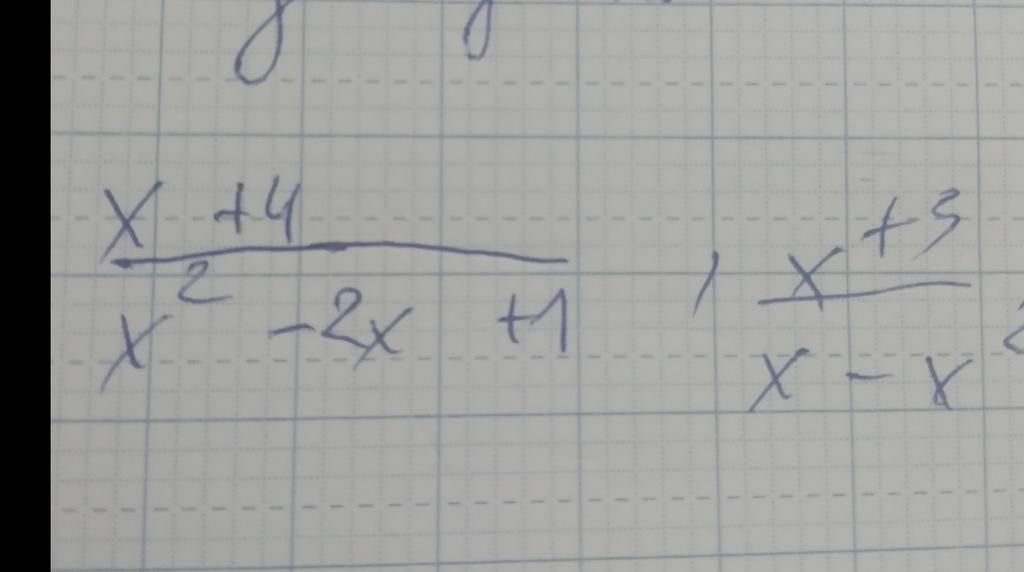 x +4 / x² -2x +1 , x +3 / x - x